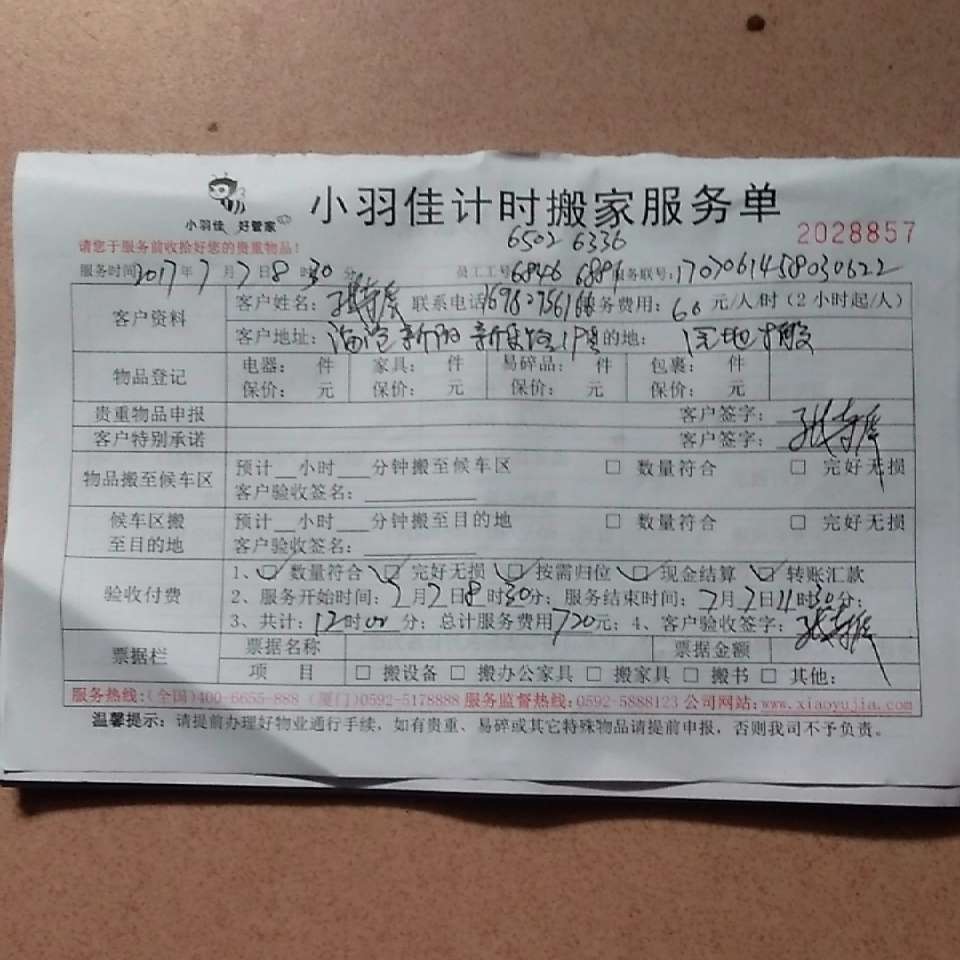 小羽佳 好管家
小羽佳计时搬家服务单
2028857
请您于服务前收拾好您的贵重物品!
6502 6336
服务时间2017年7月7日8时30分 员工工号6846 6891 服务联号:1707061458030622
客户资料
客户姓名: 联系电话 服务费用:60元/人/时(2小时起/人)
客户地址:海沧新阳 目的地:
物品登记
电器: 件 家具: 件 易碎品: 件 包裹: 件
保价: 元 保价: 元 保价: 元 保价: 元
贵重物品申报 客户签字:
客户特别承诺 客户签字:
物品搬至候车区
预计__小时___分钟搬至候车区 □ 数量符合 □ 完好无损
客户验收签名:
候车区搬至目的地
预计__小时___分钟搬至目的地 □ 数量符合 □ 完好无损
客户验收签名:
验收付费
1、☑ 数量符合 ☑ 完好无损 ☑ 按需归位 ☑ 现金结算 ☑ 转账汇款
2、服务开始时间:7月7日8时30分;服务结束时间:7月7日11时30分;
3、共计:12时00分;总计服务费用720元;4、客户验收签字:
票据栏
票据名称 票据金额
项 目 □ 搬设备 □ 搬办公家具 □ 搬家具 □ 搬书 □ 其他:
服务热线:(全国)400-6655-888 (厦门)0592-5178888 服务监督热线:0592-5888123 公司网站:www.xiaoyujia.com
温馨提示:请提前办理好物业通行手续,如有贵重、易碎或其它特殊物品请提前申报,否则我司不予负责。